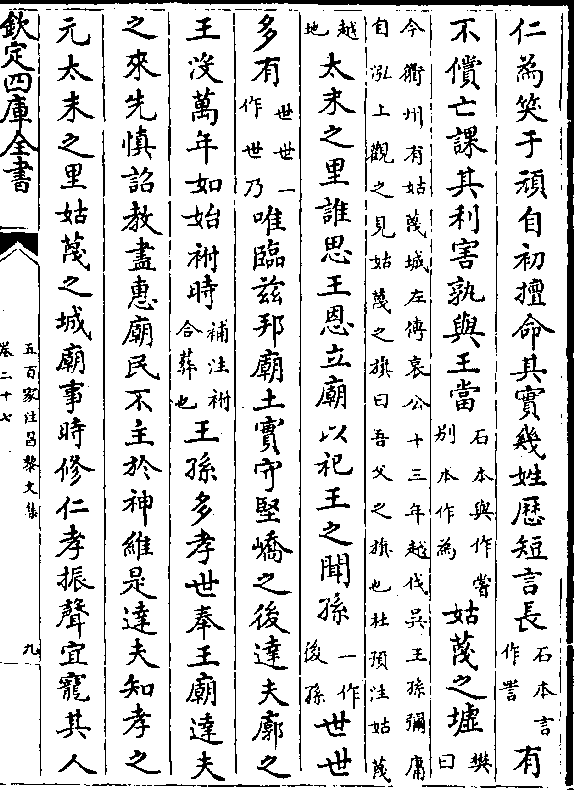 仁為笑于頑自初擅命其實幾姓歷短言長石本言作詈有
不償亡課其利害孰與王當石本與作嘗別本作為姑蔑之墟樊曰
今衢州有姑蔑城左傳哀公十三年越伐吳王孫彌庸
自泓上觀之見姑蔑之旗曰吾父之旗也杜預注姑蔑
越地太末之里誰思王恩立廟以祀王之聞孫一作後孫世世
多有世世一作世乃唯臨茲邦廟土實守堅嶠之後達夫廓之
王沒萬年如始祔時補注祔合葬也王孫多孝世奉王廟達夫
之來先慎詔教盡惠廟民不主於神維是達夫知孝之
元太末之里姑蔑之城廟事時修仁孝振聲宜寵其人
欽定四庫全書
五百家注昌黎文集
卷二十七
九